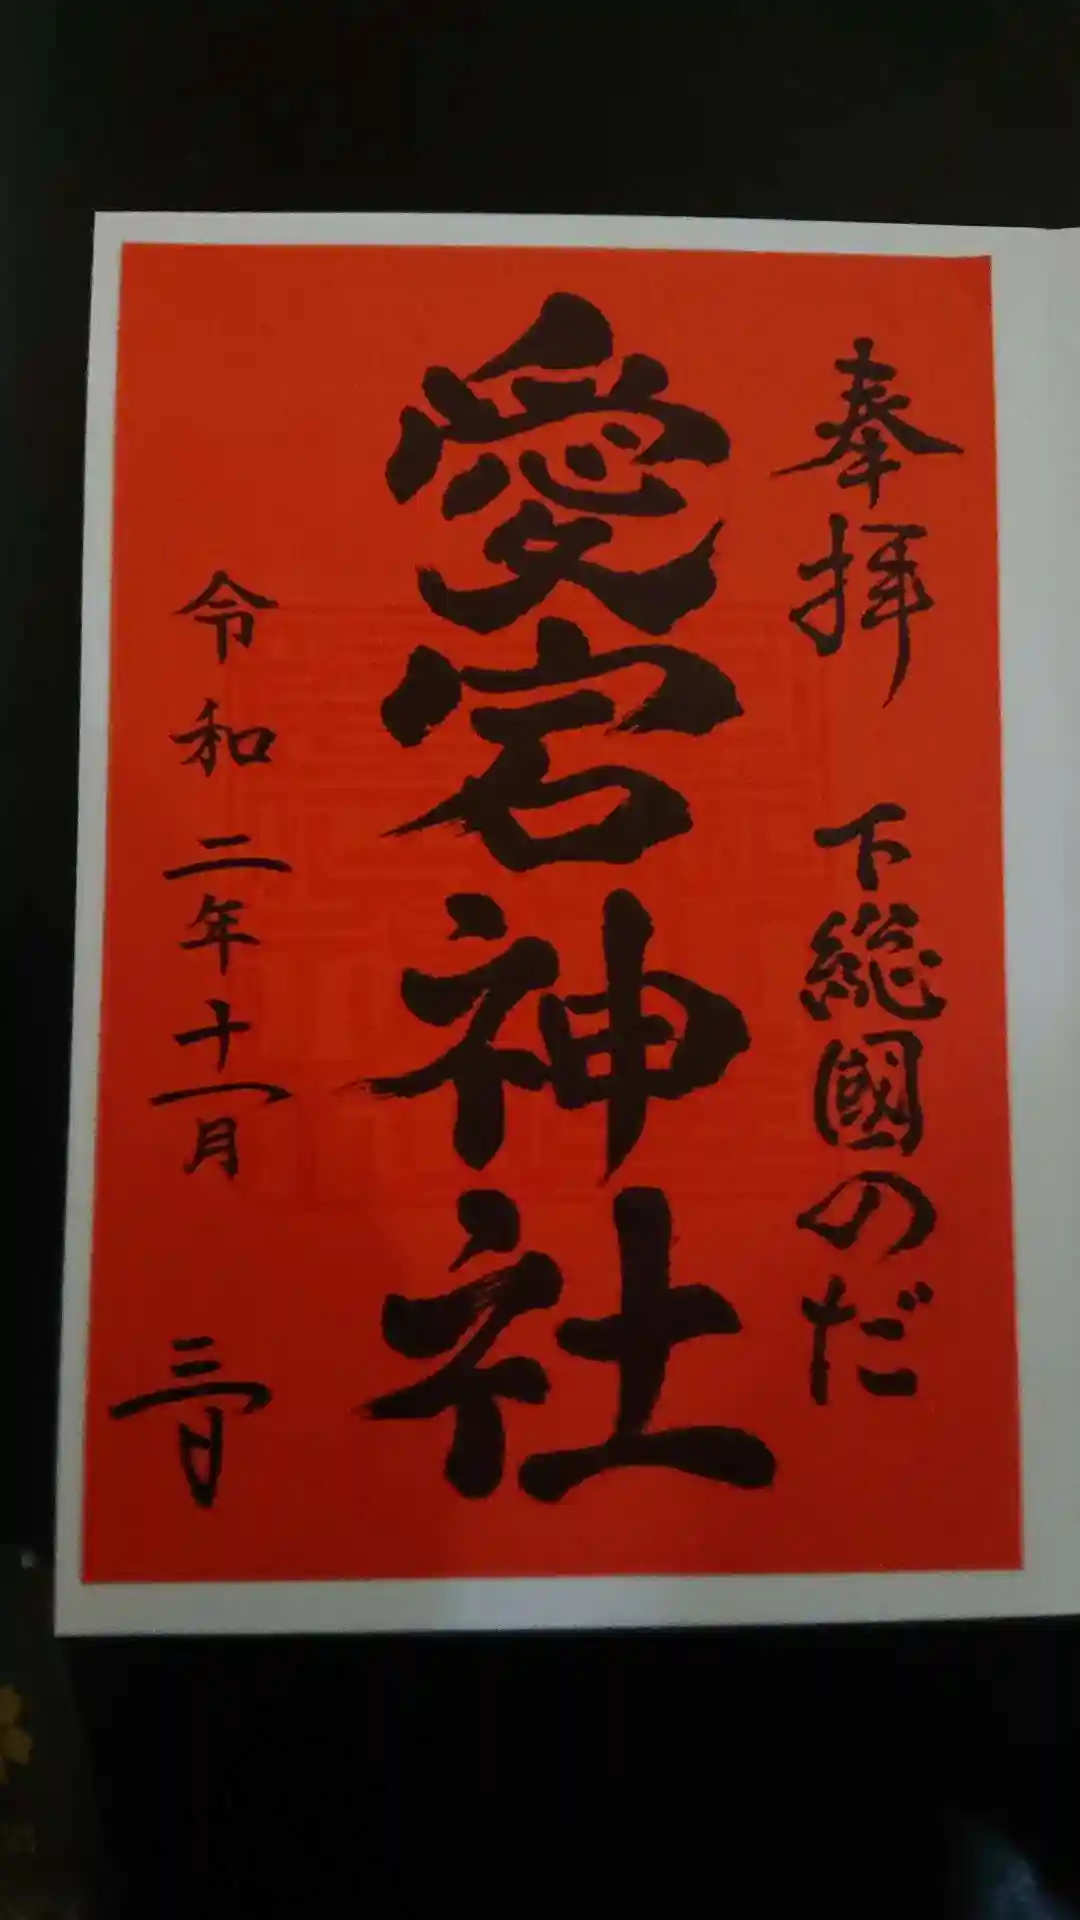 奉拝 下総國のだ
愛宕神社
令和二年十一月 三日